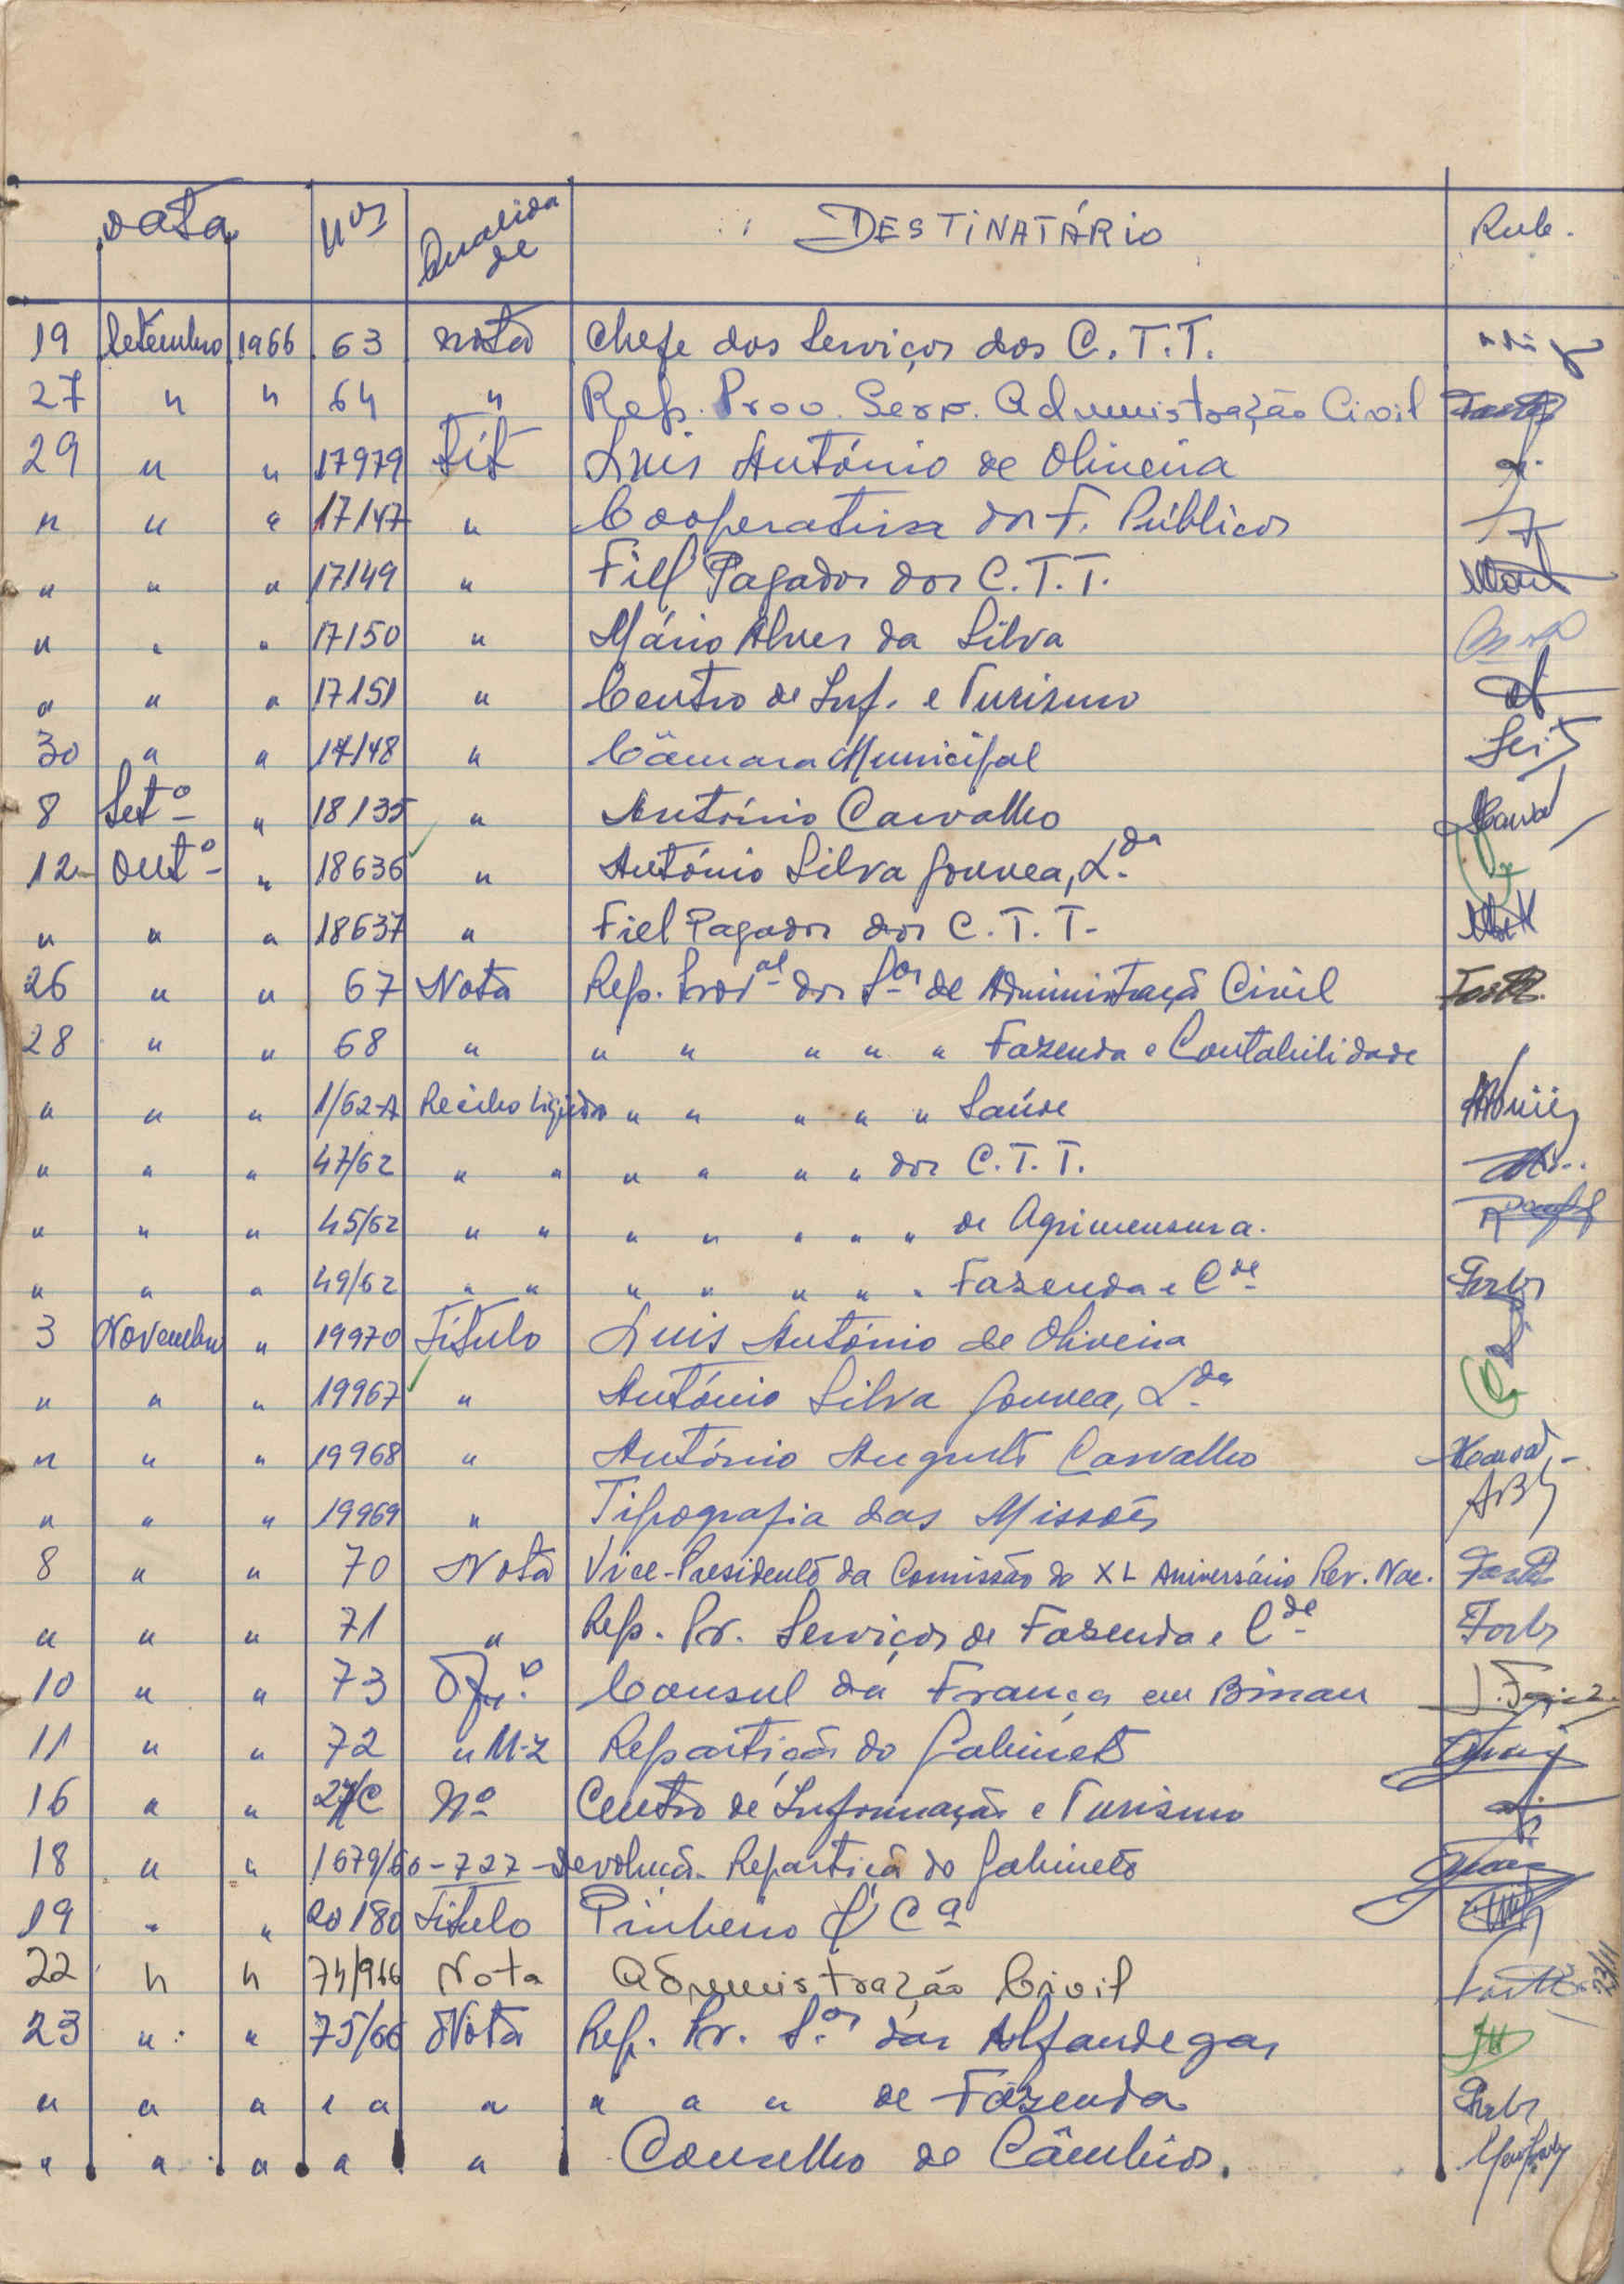 Data Nos Qualidade DESTINATÁRIO Rub.
19 Setembro 1966 63 nota Chefe dos Serviços dos C.T.T.
27 " " 64 " Rep. Prov. Serv. Administração Civil
29 " " 17979 Tít Luis António de Oliveira
" " " 17147 " Cooperativa dos F. Públicos
" " " 17149 " Fiel Pagador dos C.T.T.
" " " 17150 " Mário Alves da Silva
" " " 17151 " Centro de Inf. e Turismo
30 " " 17148 " Câmara Municipal
8 Setº " 18135 " António Carvalho
12 Outº " 18636 " António Silva Gouvea, Lda
" " " 18637 " Fiel Pagador dos C.T.T.
26 " " 67 Nota Rep. Proval dos Sos de Administração Civil
28 " " 68 " " " " " " Fazenda e Contabilidade
" " " 1/62-A Recibo " " " " " Saúde
" " " 47/62 " " " " " " dos C.T.T.
" " " 45/62 " " " " " " " de Agrimensura.
" " " 49/62 " " " " " " " Fazenda e Cde
3 Novembro " 19970 Título Luis António de Oliveira
" " " 19967 " António Silva Gouvea, Lda
" " " 19968 " António Augusto Carvalho
" " " 19969 " Tipografia das Missões
8 " " 70 Nota Vice-Presidente da Comissão do XL Aniversário Rev. Nac.
" " " 71 " Rep. Pr. Serviços de Fazenda e Cde
10 " " 73 Consul da França em Bissau
11 " " 72 " Repartição do Gabinete
16 " " 27/C Nº Centro de Informação e Turismo
18 " " 1679/60-727-Devolução Repartição do Gabinete
19 " " 20180 Título Pinheiro & Cª
22 " " 74/966 Nota Administração Civil 23/11
23 " " 75/66 Nota Rep. Pr. S.os das Alfandegas
" " " " " " " " " de Fazenda
" " " " " Conselho de Câmbios.